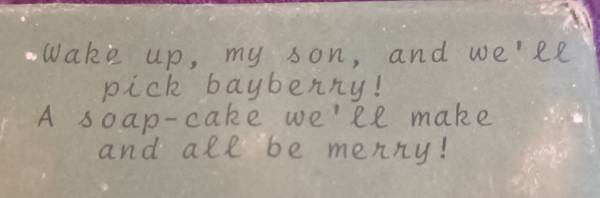 Wake up, my son, and we'll
pick bayberry!
A soap-cake we'll make
and all be merry!